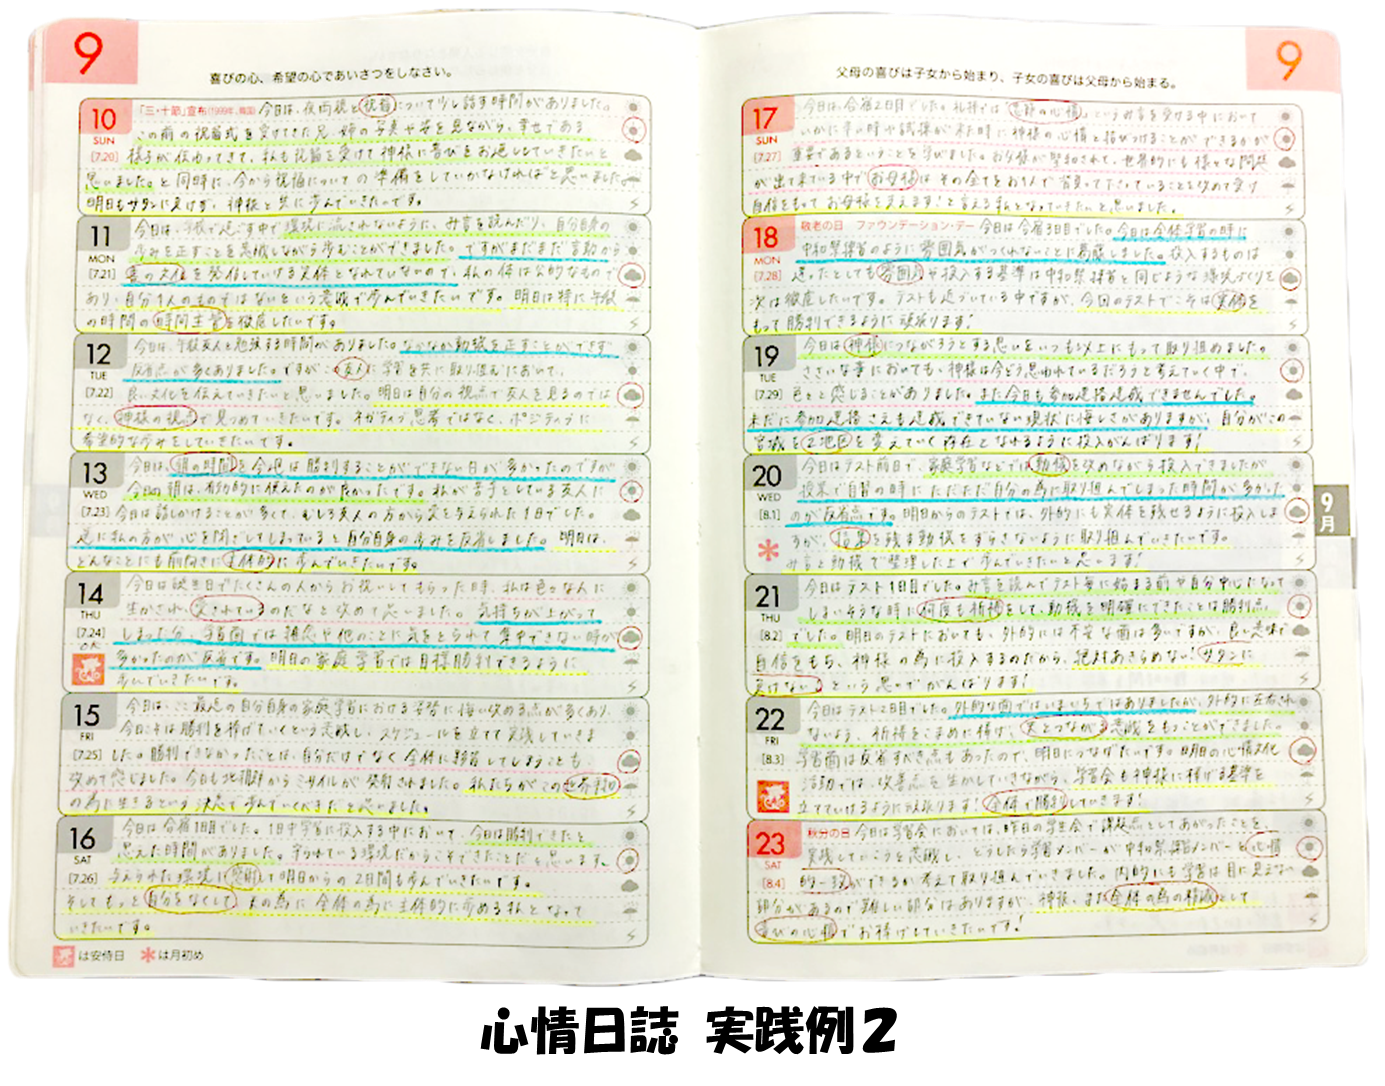 9
喜びの心、希望の心であいさつをしなさい。
10 SUN [7.20]
「三・十節」宣布(1999年、韓国) 今日は、夜両親と祝福について少し話す時間がありました。
この前の祝福式を受けてきた兄、姉の写真や姿を見ながら、幸せである
様子が伝わってきて、私も祝福を受けて神様に喜びをお返ししていきたいと
思いました。と同時に、今から祝福についての準備をしていかなければと思いました。
明日もサタンに負けず、神様と共に歩んでいきたいです。
11 MON [7.21]
今日は、学校で過ごす中で環境に流されないように、み言を読んだり、自分自身の
歩みを正すことを意識しながら歩むことができました。ですがまだまだ言動から
善の文化を発信していける実体となれていないので、私の体は公的なもので
あり、自分1人のものではないという意識で歩んでいきたいです。明日は特に午後
の時間の時間主管を徹底したいです。
12 TUE [7.22]
今日は、学校友人と勉強する時間がありました。なかなか動機を正すことができず
反省点が多くありました。ですがこの友人に学習を共に取り組むにおいて、
良い文化を伝えていきたいと思いました。明日は自分の視点で友人を見るのでは
なく、神様の視点で見つめていきたいです。ネガティブ思考ではなく、ポジティブに
希望的な歩みをしていきたいです。
13 WED [7.23]
今日は、朝の時間を今週は勝利することができない日が多かったのですが
今日の朝は、有効的に使えたのが良かったです。私が苦手としている友人に
今日は話しかけることが多くて、むしろ友人の方から愛を与えられた1日でした。
逆に私の方が心を閉ざしてしまっていると自分自身の歩みを反省しました。明日は、
どんなことにも前向きに主体的に歩んでいきたいです。
14 THU [7.24]
今日は誕生日でたくさんの人からお祝いしてもらった時、私は色々な人に
生かされ、愛されているのだなと改めて思いました。気持ちが上がって
しまった分、学習面では雑念や他のことに気をとられて集中できない時が
多かったのが反省です。明日の家庭学習では目標勝利できるように
歩んでいきたいです。
15 FRI [7.25]
今日は、ここ最近の自分自身の家庭学習における姿勢に悔い改める点が多くあり、
今日こそは勝利を捧げていくという意識し、スケジュールを立てて実践していきま
した。勝利できなかったことは、自分だけでなく全体に影響してしまうことも、
改めて感じました。今日も北朝鮮からミサイルが発射されました。私たちがこの世界平和
の為に生きるという決意で歩んでいくべきだと思いました。
16 SAT [7.26]
今日は合宿1日目でした。1日中学習に投入する中において、今日は勝利できたと
思えた時間がありました。守られている環境だからこそできたことだと思います。
与えられた環境に感謝して明日からの2日間も歩んでいきたいです。
そしてもっと自分をなくして、天の為に全体の為に主体的に歩める私となって
いきたいです。
は安侍日 は月初め
9
父母の喜びは子女から始まり、子女の喜びは父母から始まる。
17 SUN [7.27]
今日は、合宿2日目でした。礼拝では「心情」というみ言を受ける中において
いかに辛い時や試練が来た時に神様の心情と結びつけることができるかが
重要であるということを学びました。お父様が聖和されて、世界的にも様々な問題
が出て来ている中でお母様はその全てをお1人で背負って下さっていることを改めて受け
自信をもってお母様を支えます!と言える私となっていきたいと思いました。
18 MON [7.28]
敬老の日 ファウンデーション・デー 今日は合宿3日目でした。今日は全体学習の時に
中和県学習のように雰囲気がつくれないことに葛藤しました。投入するものは
違ったとしても雰囲気や投入する基準は中和県学習と同じような環境づくりを
次は徹底したいです。テストも近づいている中ですが、今回のテストでこそは実体を
もって勝利できるように頑張ります!
19 TUE [7.29]
今日は神様につながろうとする思いをいつも以上にもって取り組めました。
ささいな事においても、神様は今どう思われているだろうと考えていく中で、
色々と感じることがありました。また今日も参加目標達成できませんでした。
未だに参加目標さえも達成できていない現状に悔しさがありますが、自分がこの
宮城を2地区を変えていく存在となれるように投入がんばります!
20 WED [8.1]
今日はテスト前日で、家庭学習などでは動機を改めながら投入できましたが
授業で自習の時にただただ自分の為に取り組んでしまった時間が多かった
のが反省点です。明日からのテストでは、外的にも実体を残せるように投入しま
すが、結果を残す動機をずらさないように取り組んでいきたいです。
み言と動機で整理した上で歩んでいきたいと思います!
21 THU [8.2]
今日はテスト1日目でした。み言を読んでテスト毎に始まる前や自分中心になって
しまいそうな時に何度も祈祷をして、動機を明確にできたことは勝利点
でした。明日のテストにおいても、外的には不安な面は多いですが、良い意味で
自信をもち、神様の為に投入するのだから、絶対あきらめない!サタンに
負けない!という思いでがんばります!
22 FRI [8.3]
今日はテスト2日目でした。外的な面ではいまいちではありましたが、外的に左右され
ないよう、祈祷をこまめに捧げ、天とつながる意識をもつことができました。
学習面は反省すべき点もあったので、明日につなげたいです。明日の心情文化
活動では、改善点を生かしていきながら、学習会も神様に捧げる基準を
立てていけるように頑張ります!全体で勝利していきます!
23 SAT [8.4]
秋分の日 今日は学習会においては、昨日の学生会で課題点としてあがったことを、
実践していこうと意識し、どうしたら学習メンバーが中和県学習メンバーと心情
的一致ができるか考えて取り組んでいきました。内的にも学習は目に見えない
部分があるので難しい部分はありますが、神様、また全体の為の精誠として
喜びの心情でお捧げしていきたいです!
9月
心情日誌 実践例2